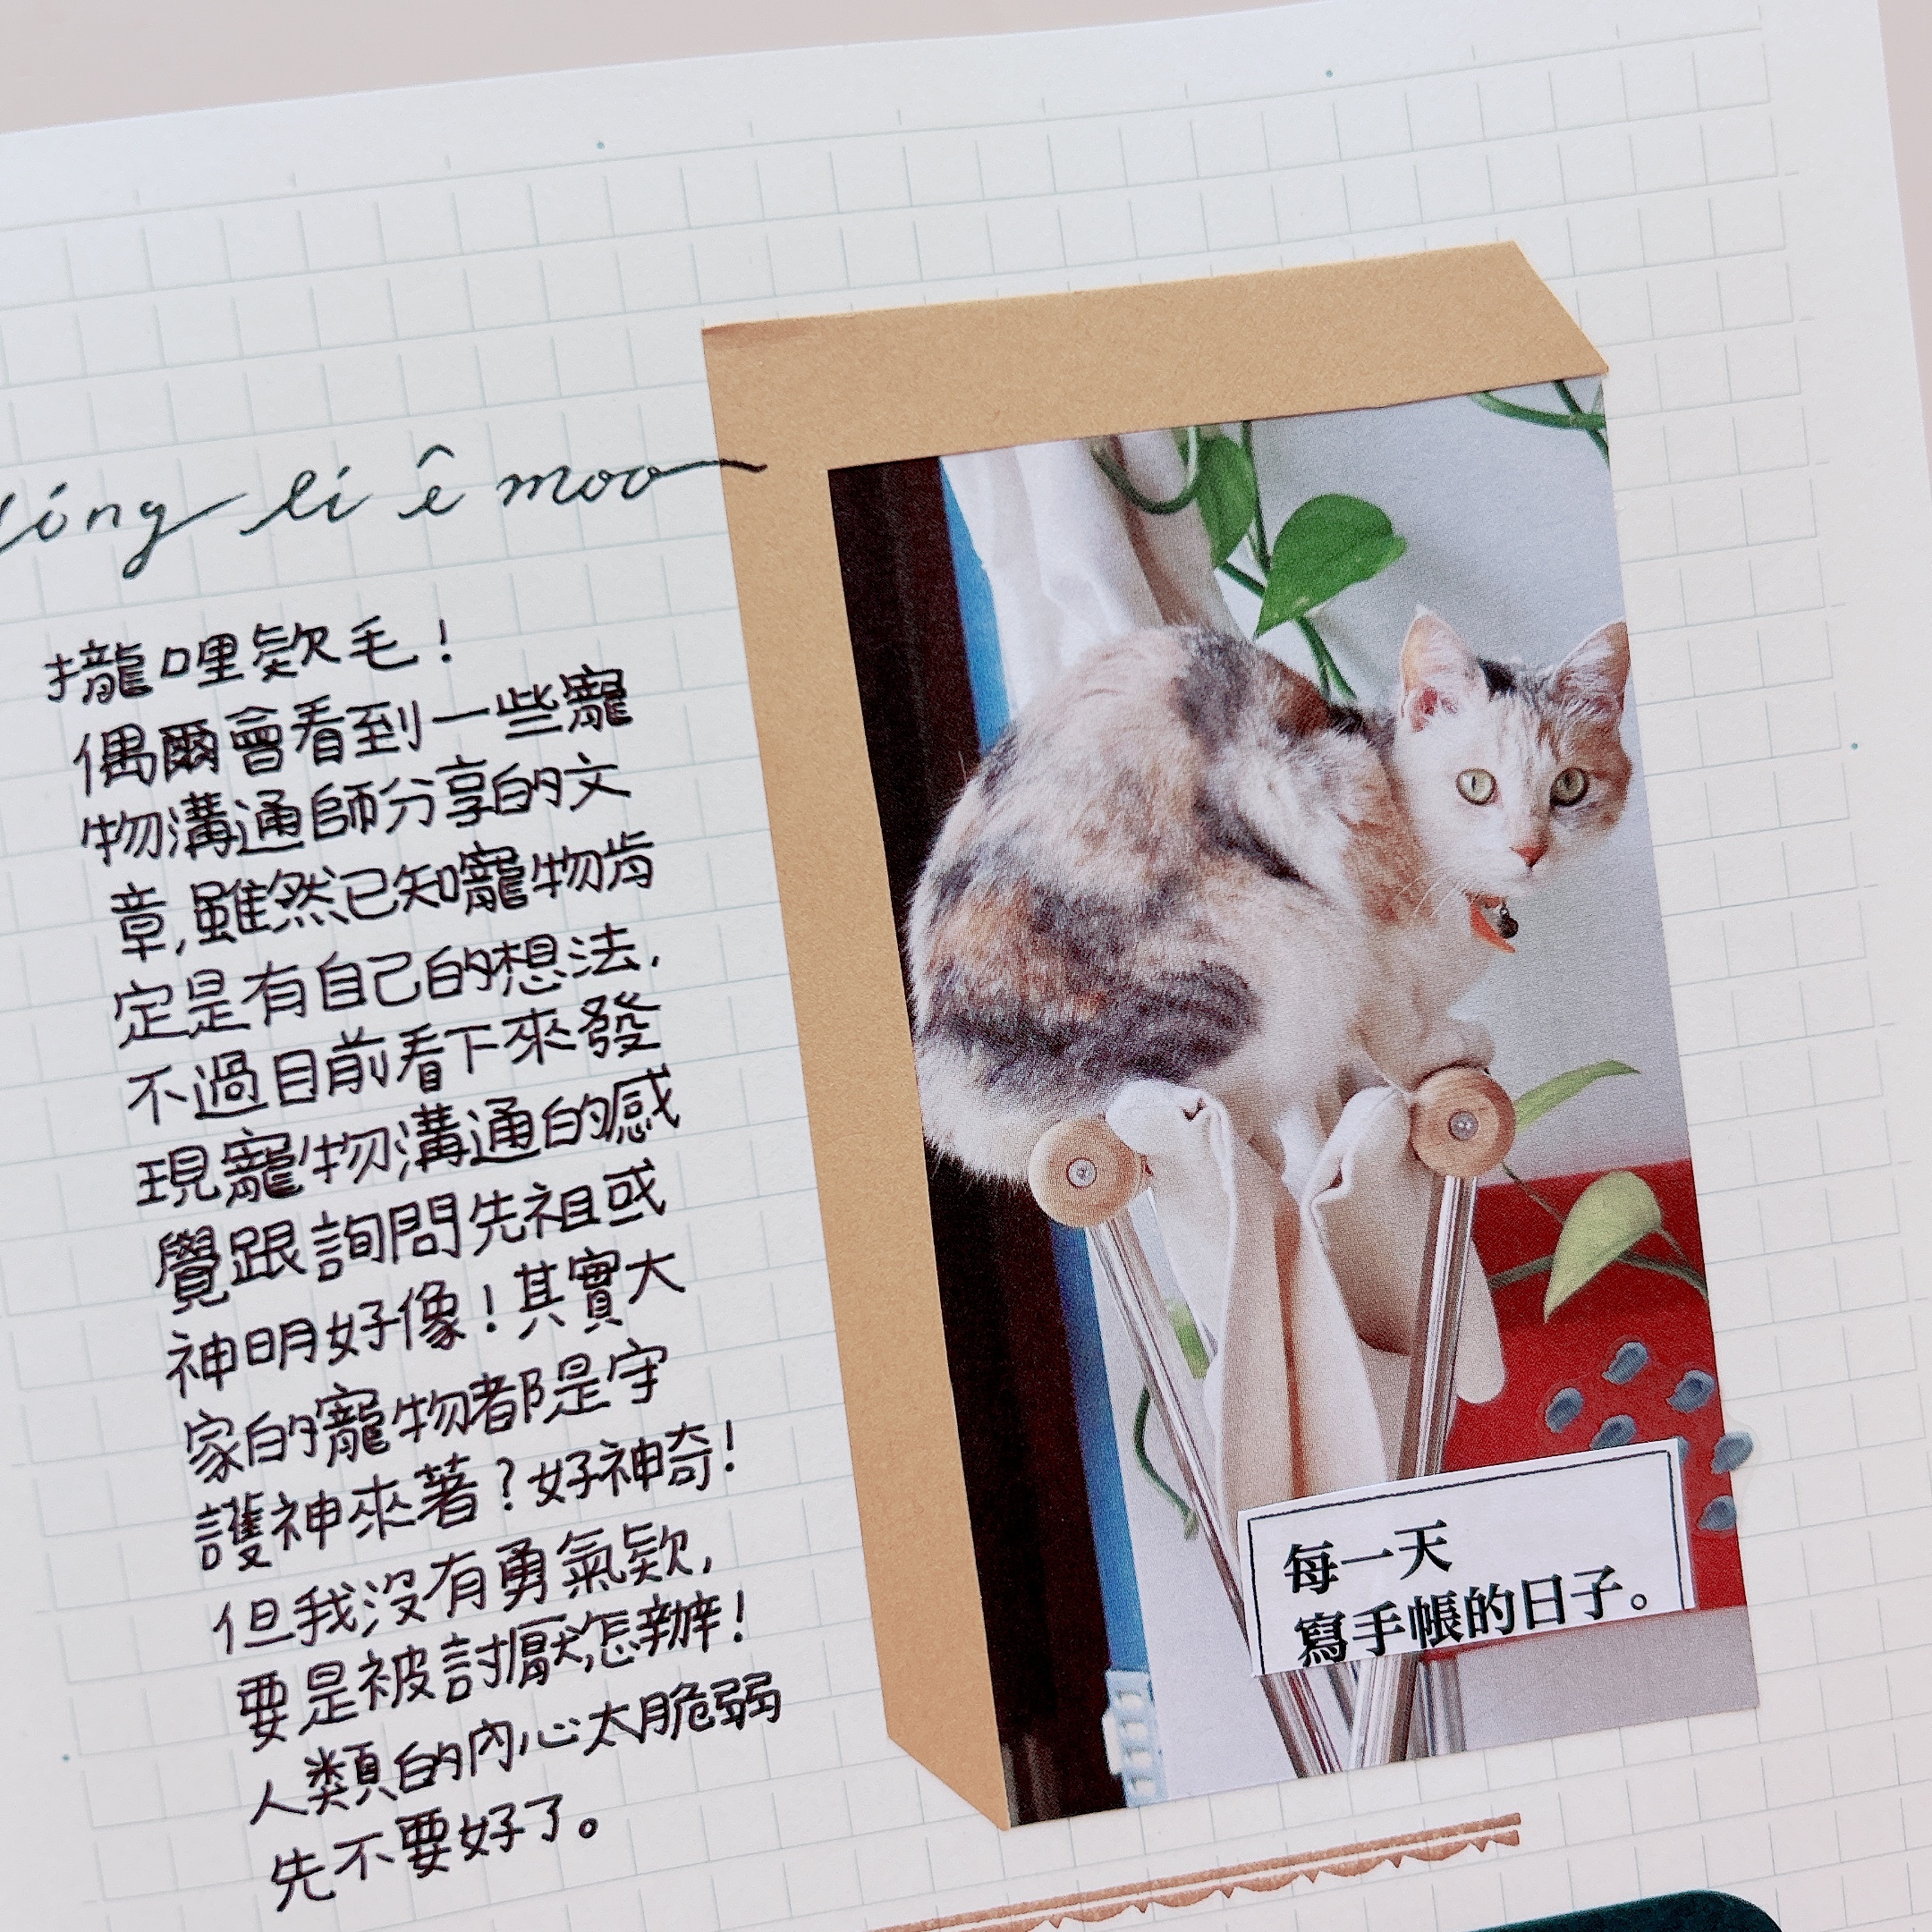 lóng li ê moo
攏哩欸毛！
偶爾會看到一些寵
物溝通師分享的文
章，雖然已知寵物肯
定是有自己的想法，
不過目前看下來發
現寵物溝通的感
覺跟詢問先祖或
神明好像！其實大
家的寵物都是守
護神來著？好神奇！
但我沒有勇氣欸，
要是被討厭怎辦！
人類的內心太脆弱
先不要好了。
每一天
寫手帳的日子。